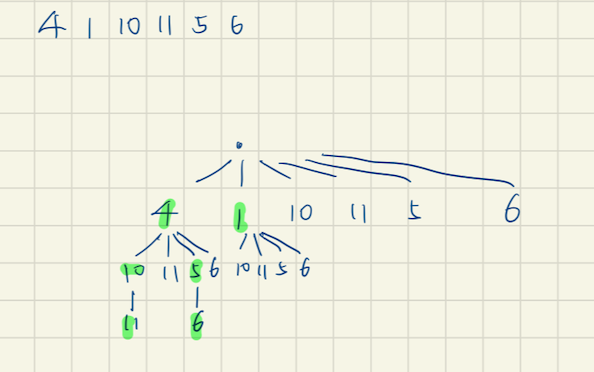 4 1 10 11 5 6
4 1 10 11 5 6
10 11 5 6 10 11 5 6
11 6